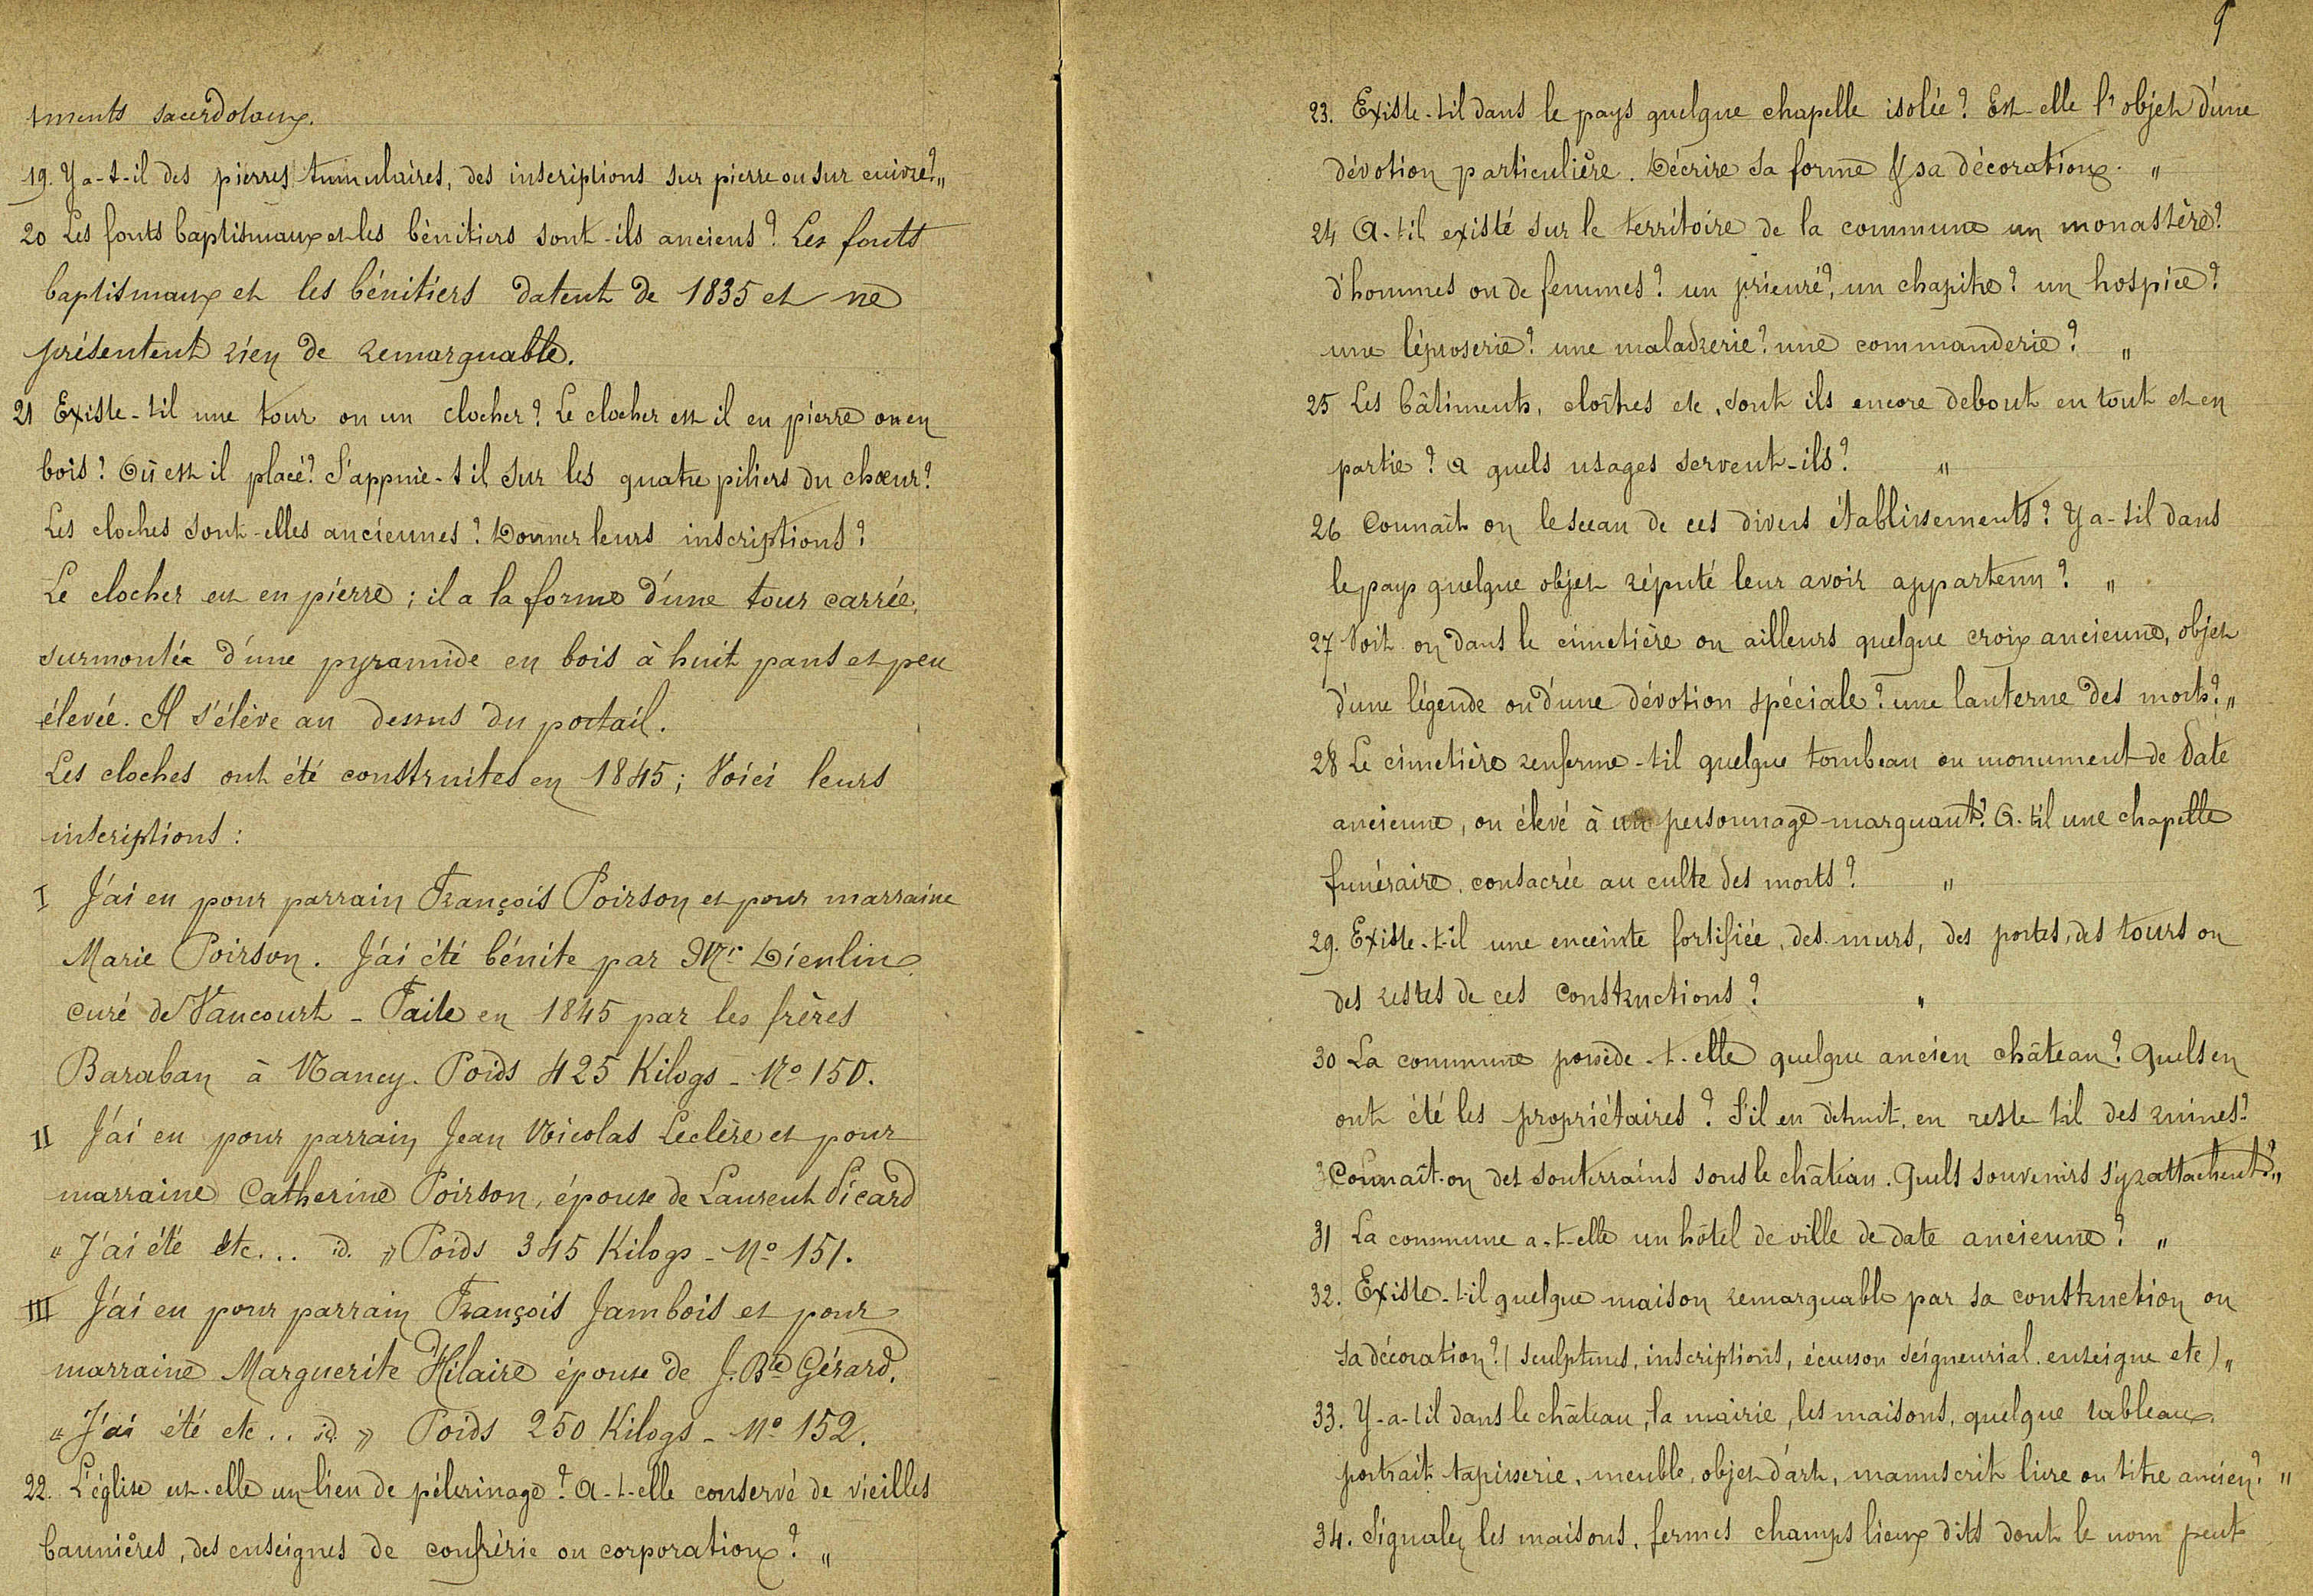 tments sacerdotaux.
19. Y a-t-il des pierres tumulaires, des inscriptions sur pierre ou sur cuivre? „
20 Les fonts baptismaux et les bénitiers sont-ils anciens? Les fonts
baptismaux et les bénitiers datent de 1835 et ne
présentent rien de remarquable.
21 Existe-t-il une tour ou un clocher? Le clocher est il en pierre ou en
bois? Où est il placé? S'appuie-t il sur les quatre piliers du chœur?
Les cloches sont-elles anciennes? Donner leurs inscriptions?
Le clocher est en pierre; il a la forme d'une tour carrée,
surmontée d'une pyramide en bois à huit pans et peu
élevée. Il s'élève au dessus du portail.
Les cloches ont été construites en 1845; Voici leurs
inscriptions:
I J'ai eu pour parrain François Poirson et pour marraine
Marie Poirson. J'ai été bénite par Mr Dieulin
curé de Vaucourt - Faite en 1845 par les frères
Baraban à Nancy. Poids 425 Kilogs - No 150.
II J'ai eu pour parrain, Jean Nicolas Leclère et pour
marraine Catherine Poirson, épouse de Laurent Picard
"J'ai été etc... id. » Poids 345 Kilogs - No 151.
III J'ai eu pour parrain François Jambois et pour
marraine Marguerite Hilaire épouse de J. Bte Gérard.
"J'ai été etc.. id. » Poids 250 Kilogs - No 152.
22. L'église est-elle un lieu de pélerinage? A-t-elle conservé de vieilles
bannières, des enseignes de confrérie ou corporation? „
9
23. Existe-t-il dans le pays quelque chapelle isolée? Est-elle l'objet d'une
dévotion particulière. Décrire sa forme & sa décoration. „
24 A-t-il existé sur le territoire de la commune un monastère?
d'hommes ou de femmes? un prieuré?, un chapitre? un hospice?
une léproserie? une maladrerie? une commanderie? „
25 Les bâtiments, cloîtres etc, sont ils encore debout en tout et en
partie? A quels usages servent-ils? „
26 Connaît on le sceau de ces divers établissements? Y a-t-il dans
le pays quelque objet réputé leur avoir appartenu? „
27 Voit on dans le cimetière ou ailleurs quelque croix ancienne, objet
d'une légende ou d'une dévotion spéciale? une lanterne des morts? „
28 Le cimetière renferme-t-il quelque tombeau ou monument de date
ancienne, ou élevé à un personnage marquant? A-t-il une chapelle
funéraire, consacrée au culte des morts? „
29. Existe-t-il une enceinte fortifiée, des murs, des portes, des tours ou
des restes de ces constructions? „
30 La commune possède-t-elle quelque ancien château? Quels en
ont été les propriétaires? S'il en détruit, en reste-t-il des ruines?
Connaît-on des souterrains sous le château. Quels souvenirs s'y rattachent? „
31 La commune a-t-elle un hôtel de ville de date ancienne? „
32. Existe-t-il quelque maison remarquable par sa construction ou
sa décoration? (sculptures, inscriptions, écusson seigneurial. enseigne etc) „
33. Y-a-t-il dans le château, la mairie, les maisons, quelque tableau
portrait tapisserie, meuble, objet d'art, manuscrit livre ou titre ancien? „
34. Signaler les maisons, fermes champs lieux dits dont le nom peut